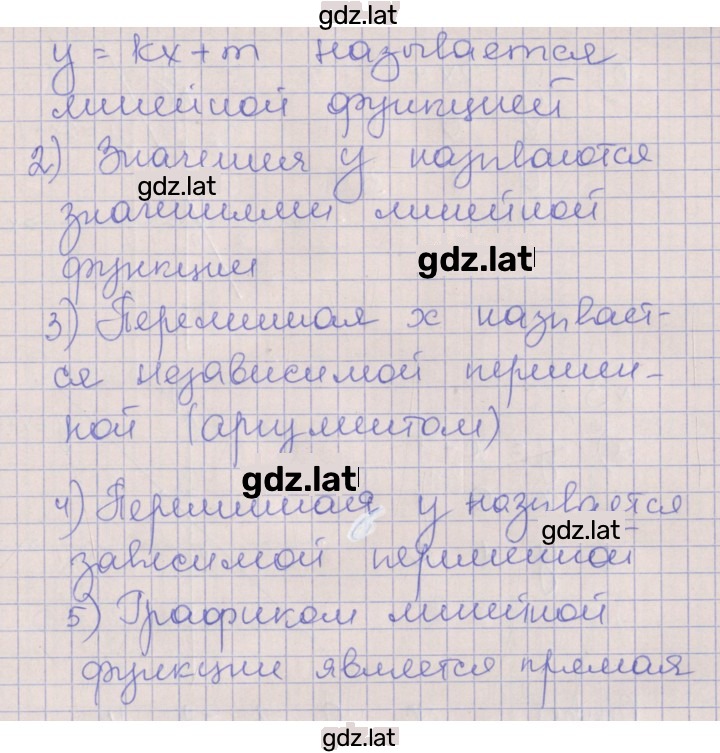 gdz.lat
y = kx + m называется
линейной функцией
2) Значения y называются
gdz.lat
значениями линейной
функции
gdz.lat
3) Переменная x называет-
ся независимой перемен-
ной (аргументом)
gdz.lat
4) Переменная y называются
gdz.lat
зависимой переменной
5) Графиком линейной
функции является прямая
gdz.lat